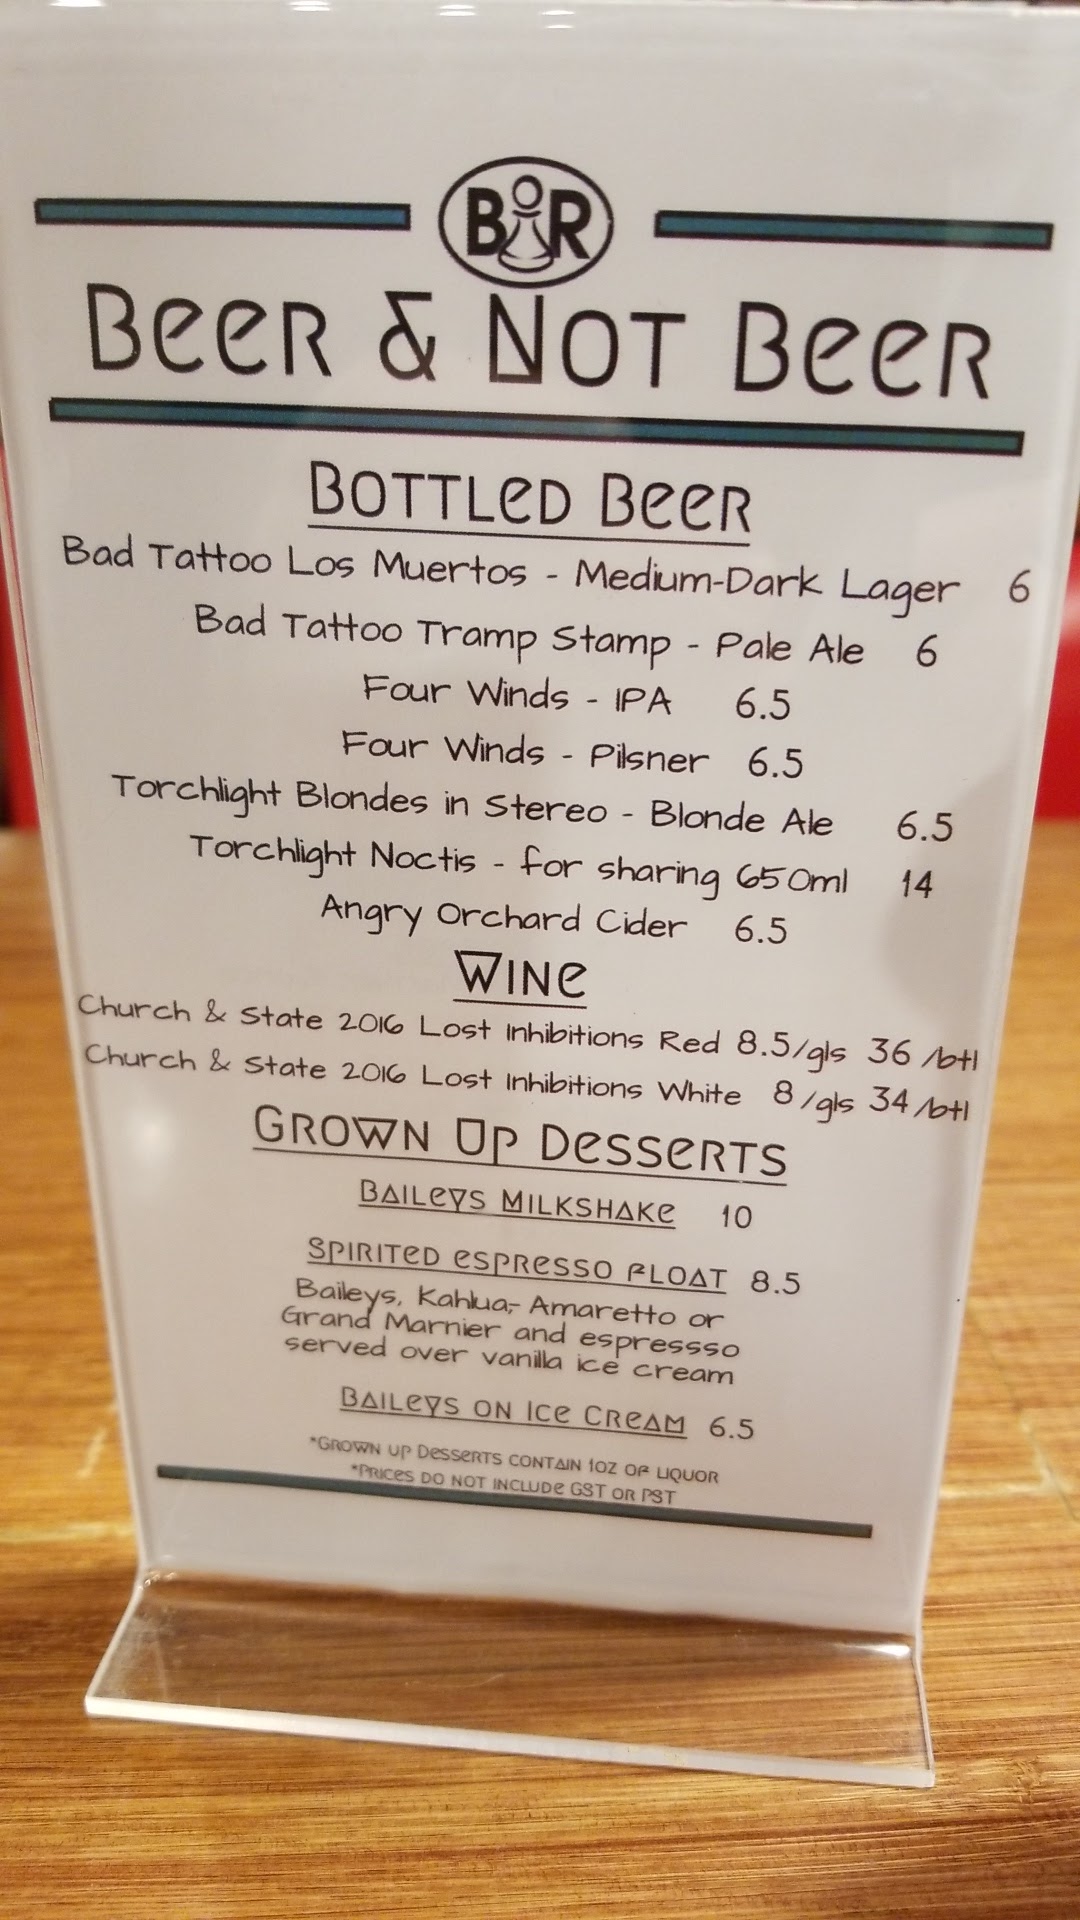 B R
Beer & Not Beer
Bottled Beer
Bad Tattoo Los Muertos - Medium-Dark Lager 6
Bad Tattoo Tramp Stamp - Pale Ale 6
Four Winds - IPA 6.5
Four Winds - Pilsner 6.5
Torchlight Blondes in Stereo - Blonde Ale 6.5
Torchlight Noctis - for sharing 650ml 14
Angry Orchard Cider 6.5
Wine
Church & State 2016 Lost Inhibitions Red 8.5/gls 36 /btl
Church & State 2016 Lost Inhibitions White 8/gls 34/btl
Grown Up Desserts
Baileys Milkshake 10
Spirited espresso float 8.5
Baileys, Kahlua,- Amaretto or
Grand Marnier and espressso
served over vanilla ice cream
Baileys on Ice Cream 6.5
*Grown up Desserts contain 1oz of liquor
*Prices do not include GST or PST